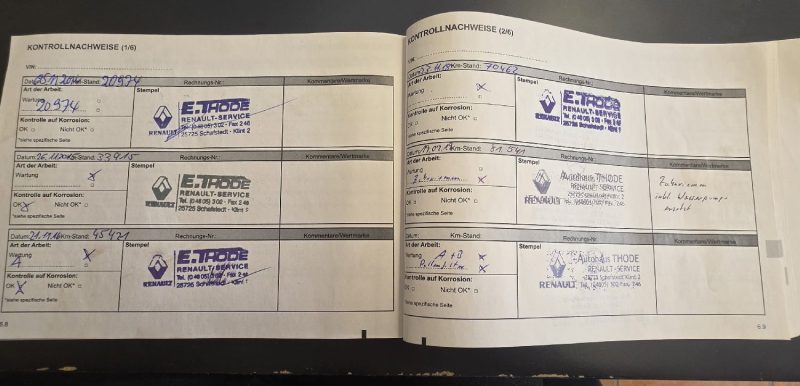 KONTROLLNACHWEISE (1/6)
VIN:
Datum: 25.11.2014 Km-Stand: 20974
Rechnungs-Nr.:
Kommentare/Wertmarke
Art der Arbeit:
Stempel
Wartung
20974
Kontrolle auf Korrosion:
OK Nicht OK*
*siehe spezifische Seite
E.THODE
RENAULT-SERVICE
Tel. (0 48 05) 3 02 - Fax 2 46
25725 Schafstedt - Klint 2
RENAULT
Datum: 26.11.2015 Km-Stand: 33915
Rechnungs-Nr.:
Kommentare/Wertmarke
Art der Arbeit:
Stempel
Wartung X
Kontrolle auf Korrosion:
OK X Nicht OK*
*siehe spezifische Seite
E.THODE
RENAULT-SERVICE
Tel. (0 48 05) 3 02 - Fax 2 46
25725 Schafstedt - Klint 2
RENAULT
Datum: 21.11.16 Km-Stand: 45421
Rechnungs-Nr.:
Kommentare/Wertmarke
Art der Arbeit:
Stempel
Wartung X
A
Kontrolle auf Korrosion:
OK X Nicht OK*
*siehe spezifische Seite
E.THODE
RENAULT-SERVICE
Tel. (0 48 05) 3 02 - Fax 2 46
25725 Schafstedt - Klint 2
RENAULT
6.8
KONTROLLNACHWEISE (2/6)
VIN:
Datum: Km-Stand: 70462
Rechnungs-Nr.:
Kommentare/Wertmarke
Art der Arbeit:
Stempel
Wartung X
Kontrolle auf Korrosion:
OK Nicht OK*
*siehe spezifische Seite
E.THODE
RENAULT-SERVICE
Tel. (0 48 05) 3 02 - Fax 2 46
25725 Schafstedt - Klint 2
RENAULT
Datum: Km-Stand: 81541
Rechnungs-Nr.:
Kommentare/Wertmarke
Art der Arbeit:
Stempel
Wartung
Zahnriemen X
Kontrolle auf Korrosion:
OK Nicht OK*
*siehe spezifische Seite
Autohaus THODE
RENAULT-SERVICE
25725 Schafstedt Klint 2
RENAULT
Zahnriemen
inkl. Wasserpumpe
ersetzt
Datum: Km-Stand:
Rechnungs-Nr.:
Kommentare/Wertmarke
Art der Arbeit:
Stempel
Wartung A + B X
Pollenfilter X
Kontrolle auf Korrosion:
OK Nicht OK*
*siehe spezifische Seite
Autohaus THODE
RENAULT-SERVICE
25725 Schafstedt Klint 2
RENAULT Tel. (04805) 302 Fax. 246
6.9